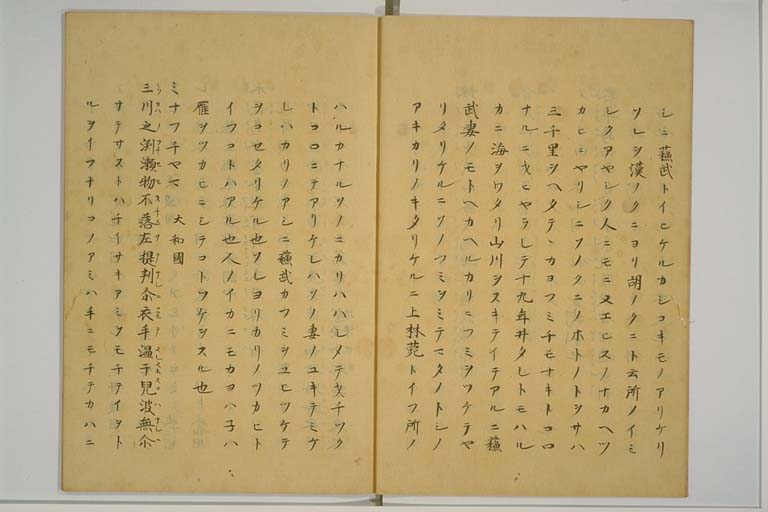 シニ蘓武トイヒケルカシコキモノアリケリ
ソレヲ漢ノクニヨリ胡ノクニト云所ノイミ
シクアヤシク人ニモニヌエヒスノナカヘツ
カヒニヤリシニソノクニノホトノトシサハ
三千里ヲヘタテヽカヨフミチモナキトコロ
ナルニ火ヒヤラレテ十九年井タレトモハル
カニ海ヲワタリ山川ヲスキテイテアルニ蘓
武妻ノモトヘカヘルカリニフミヲツケテヤ
リタリケルニソノフミヲミテマタノトシノ
アキカリノキタリケルニ上林菀トイフ所ノ
ハルカナルソノニカリハハレメテ火チツク
トコロニテアリケレハソノ妻ノユキテミケ
レハカリノアシニ蘓武カフミヲユヒツケテ
ヲコセタリケル也ソレヨリカリノツカヒト
イフコトハアル也人ノイカニモカヨハ子ハ
雁ヲツカヒニシテコトツケヲスル也
ミナフチヤマ 大和國
三川之渕瀬物不落左提判尓衣手濕干兒波無尓
サテサストハチイサキアミヲモチテイヲト
ルヲイフナリコノアミハチニモチテカハニ